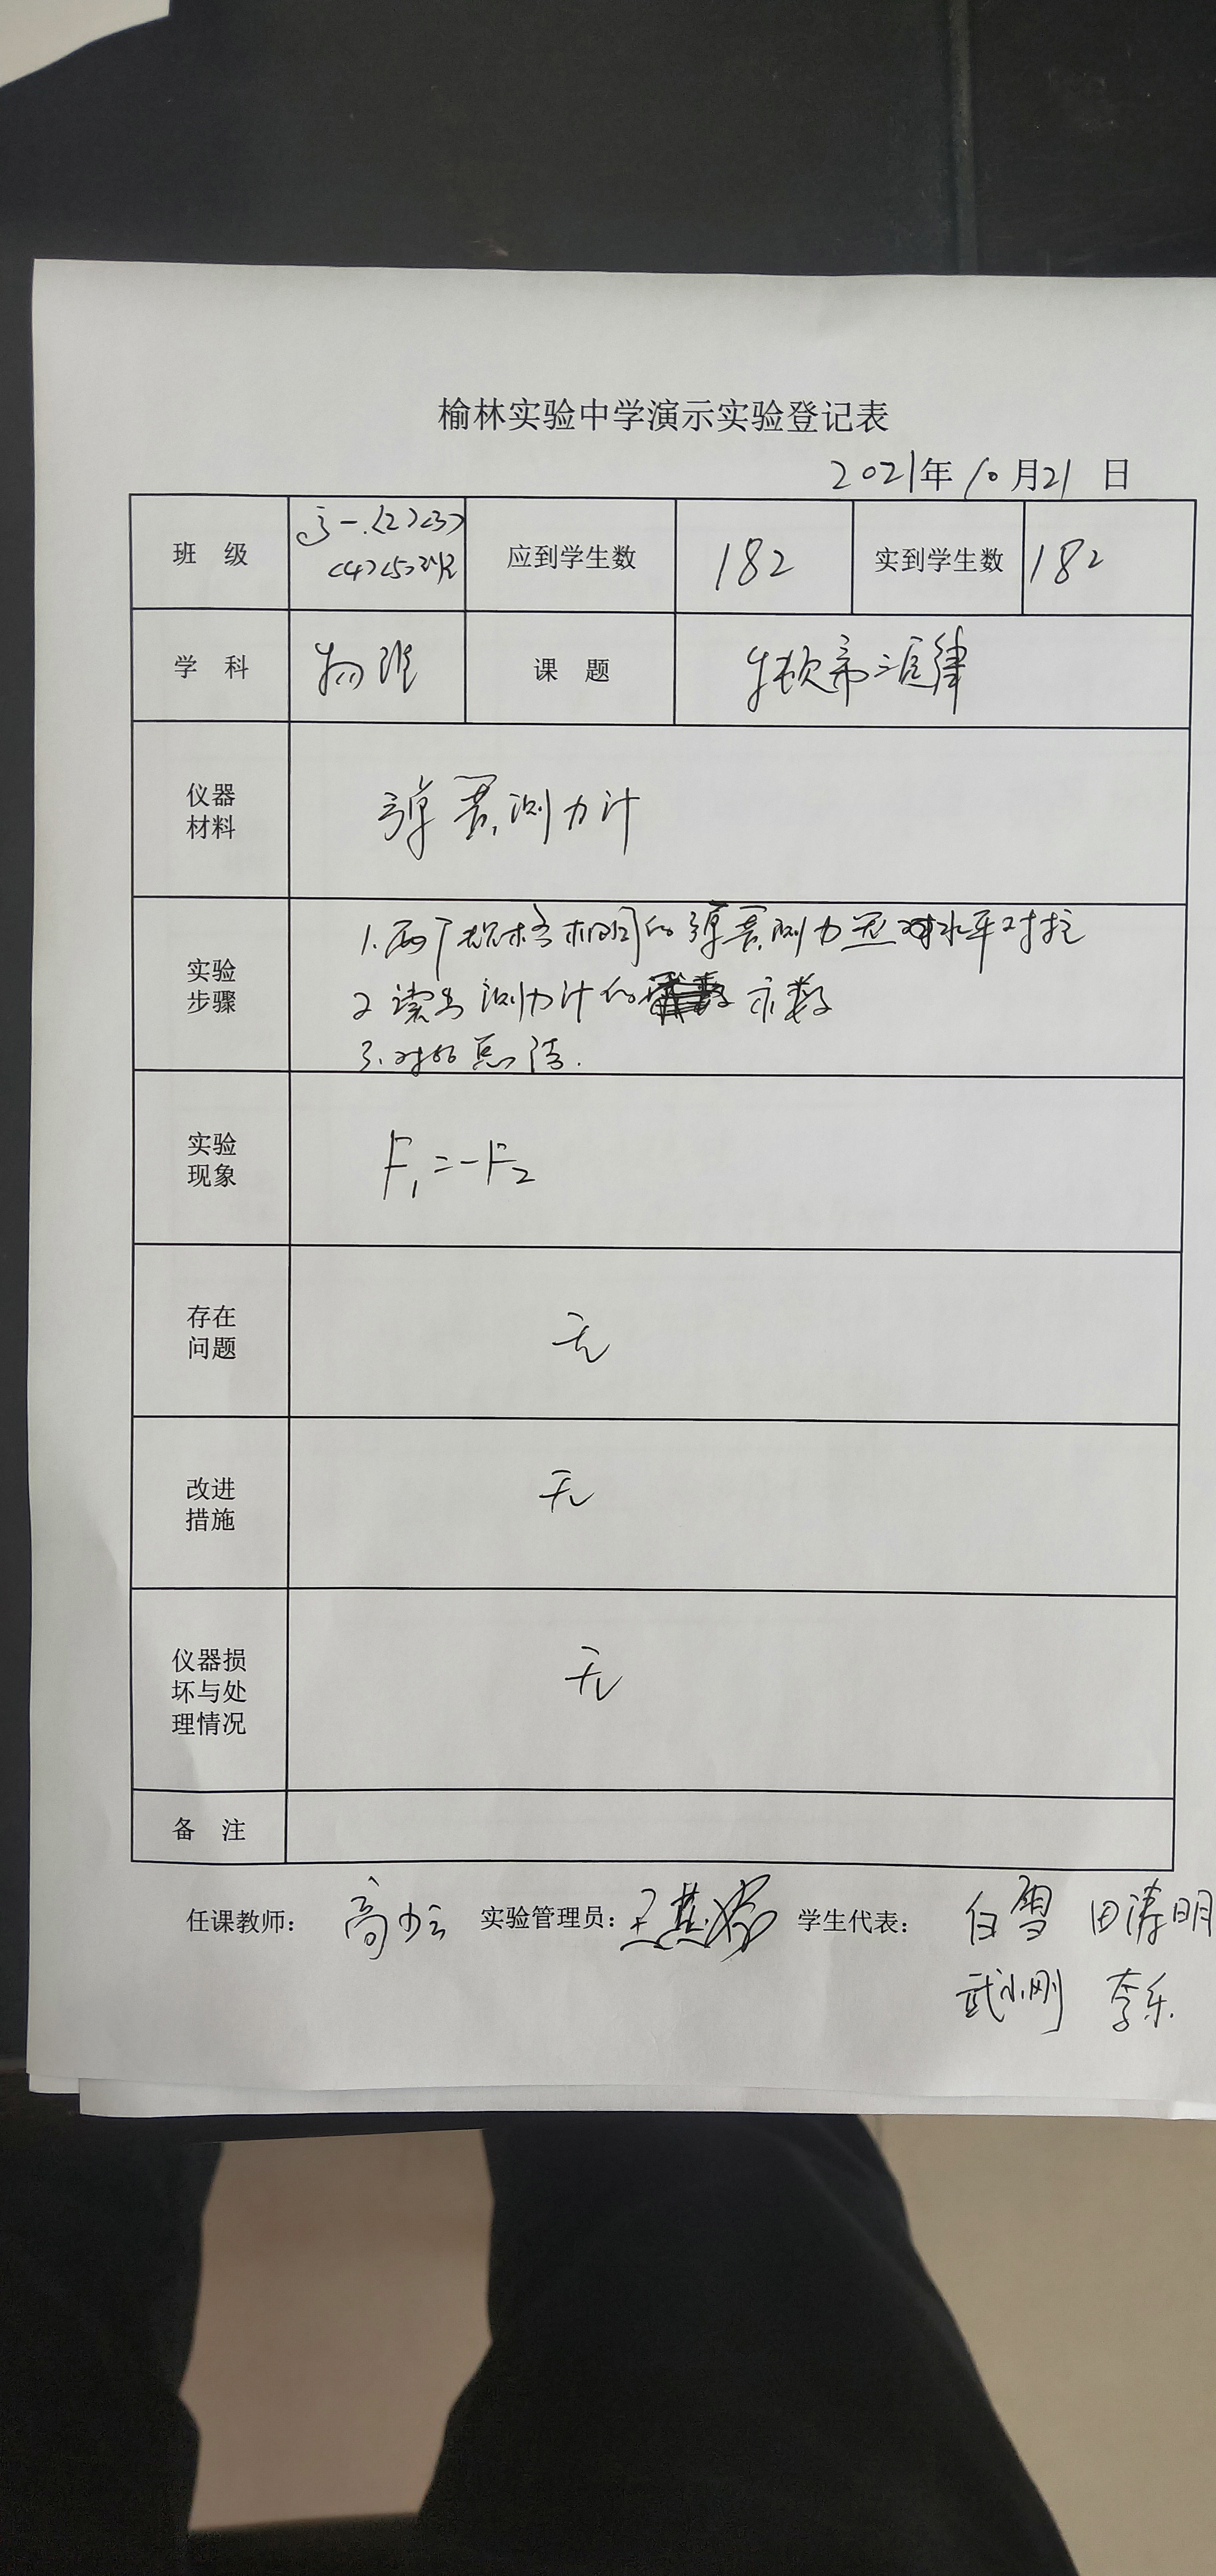 榆林实验中学演示实验登记表
2021年10月21日
班 级 高一.<2><3> 应到学生数 182 实到学生数 182
<4><5>班
学 科 物理 课 题 牛顿第三定律
仪器 弹簧测力计
材料
1.两个规格相同的弹簧测力 水平对拉
实验 2 读出测力计的 示数
步骤
3.对比总结.
实验 F₁=-F₂
现象
存在 无
问题
改进 无
措施
仪器损 无
坏与处
理情况
备 注
任课教师: 高 实验管理员: 王 学生代表: 白雪 田涛明
武小刚 李乐